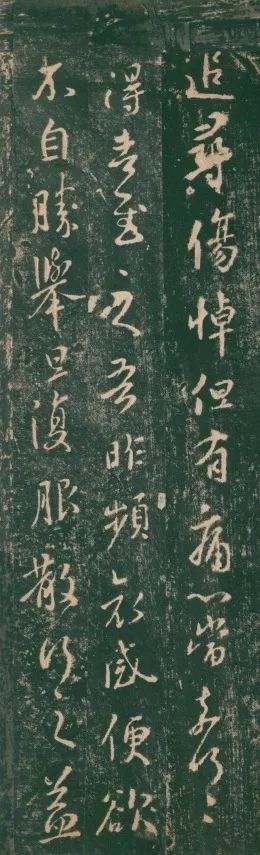 追尋傷悼但有痛心當奈何〻
得告慰之吾昨頻哀感便欲
不自勝舉旦復服散行之益